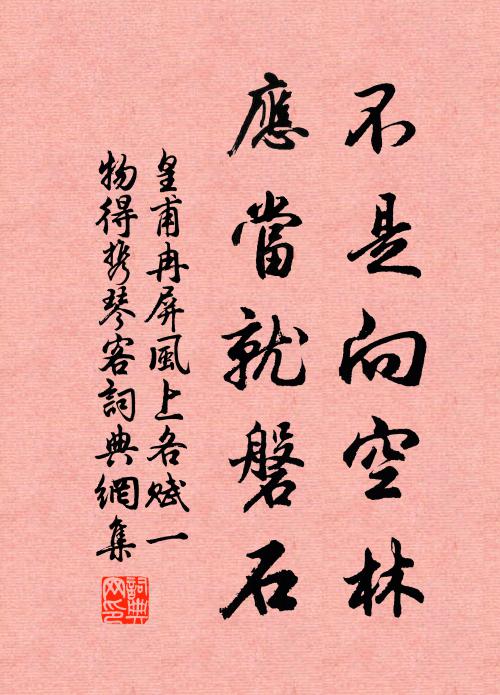 不是向空林
應當就磐石
皇甫冉屏風上各賦一
物得攜琴客詞典網集
詞典網印